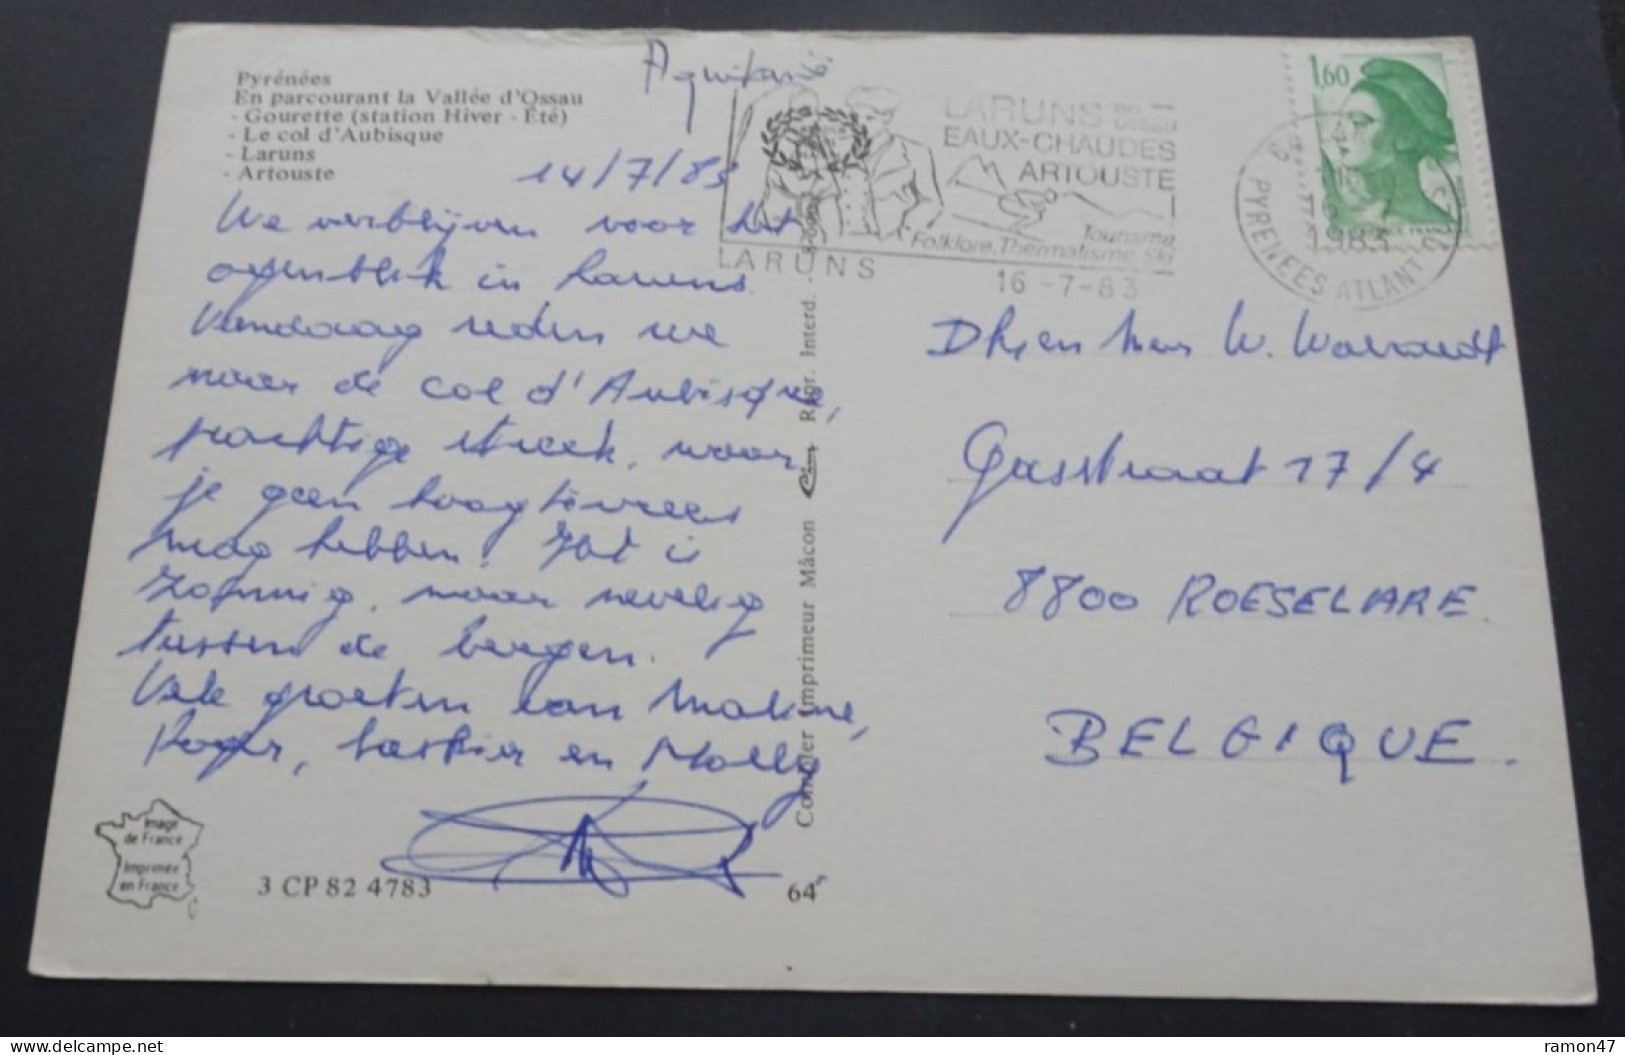 Pyrénées
En parcourant la Vallée d'Ossau
- Gourette (station Hiver - Eté)
- Le col d'Aubisque
- Laruns
- Artouste
14/7/83
We verblijven voor het
ogenblik in Laruns.
Vandaag reden we
naar de col d'Aubisque,
prachtige streek, waar
je geen hoogtevrees
mag hebben. Het is
zonnig, maar nevelig
tussen de bergen.
Vele groeten van
Roger, en Molly
Image
de France
Imprimée
en France
3 CP 82 4783
64
Combier Imprimeur Mâcon Cim Repr. Interd.
LARUNS EN OSSAU
EAUX-CHAUDES
ARTOUSTE
Tourisme
Folklore, Thermalisme, Ski
LARUNS
16-7-83
1,60
1983
PYRENEES ATLANT
W.
Gasstraat 17/4
8800 ROESELARE.
BELGIQUE.
ramon47